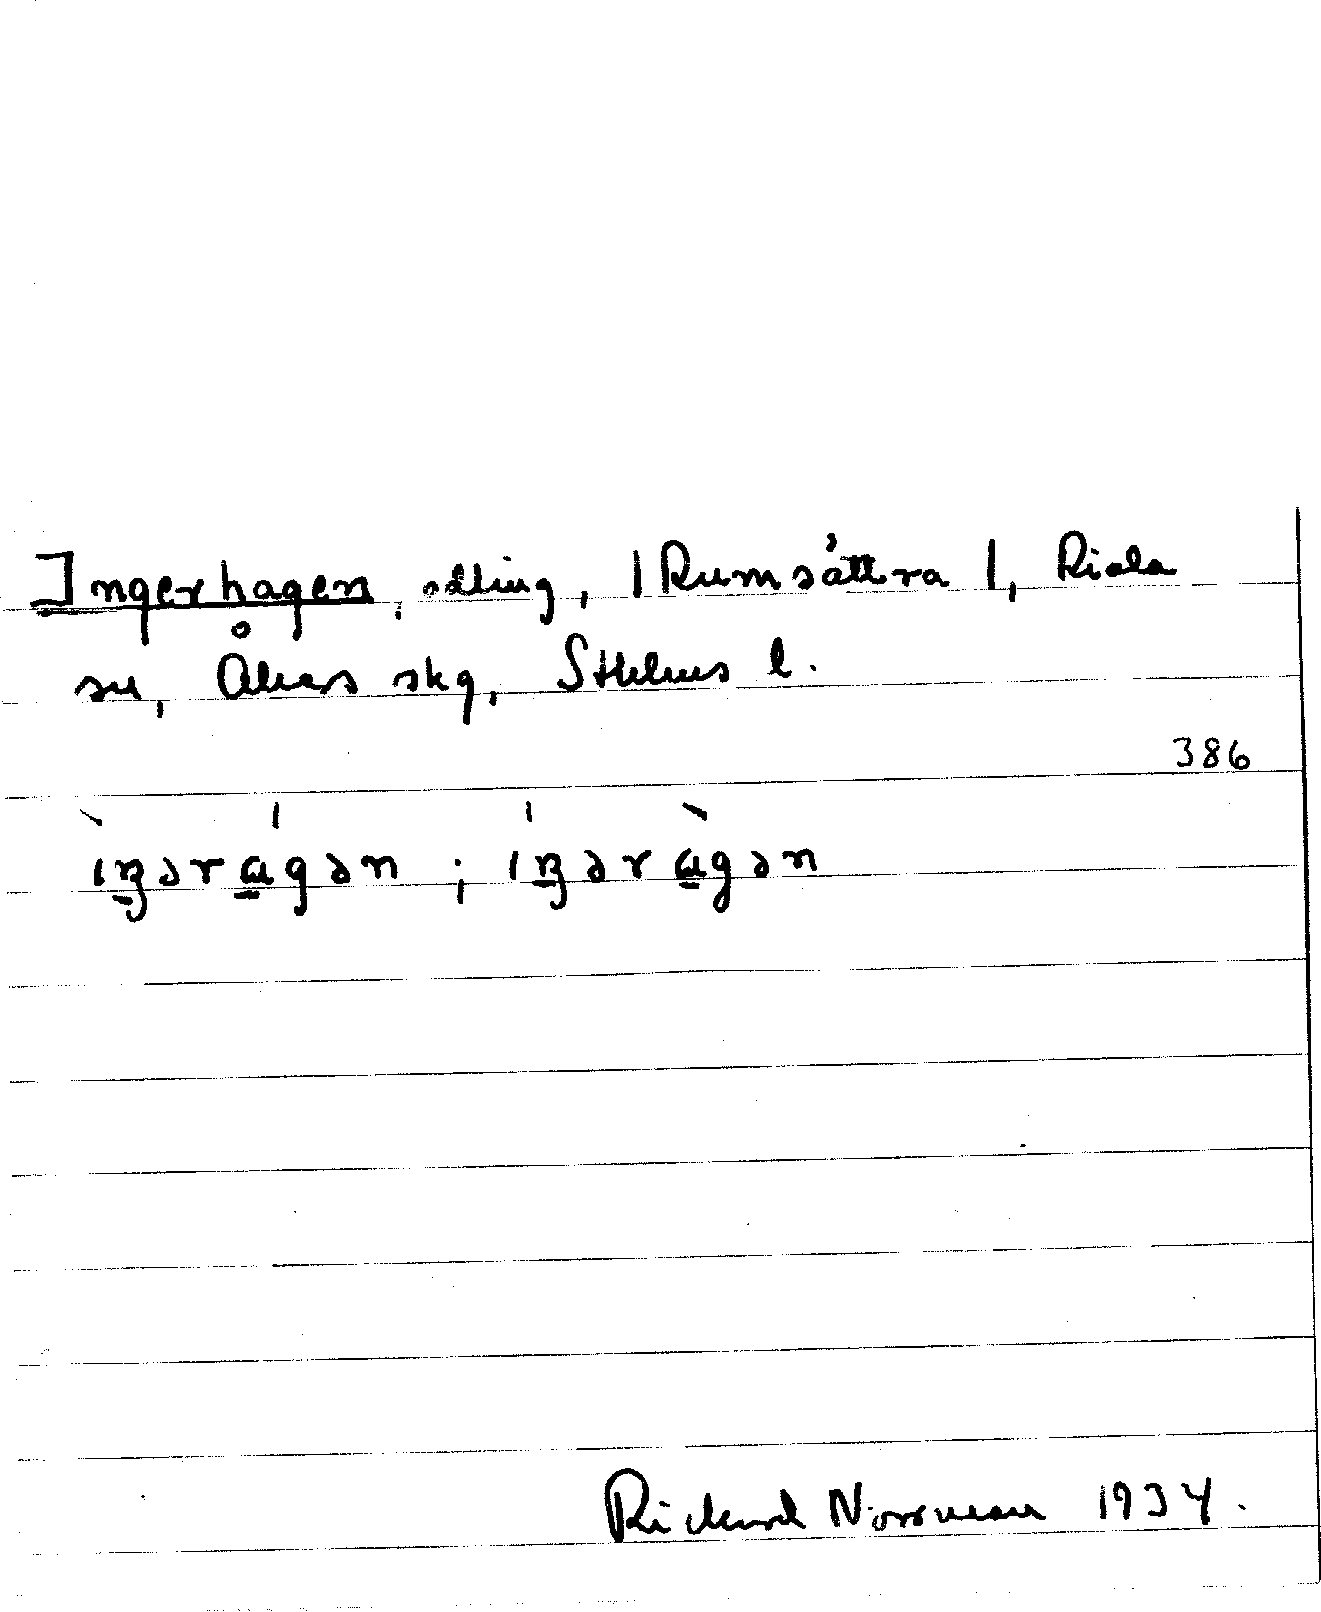 Ingerhagen, sälling, | Rumsättra |, Riala
sn, Åkers skg, Sthlms l.
386
ıŋərɑgən ; ıŋərɑgən
Rickard Norrman 1934.